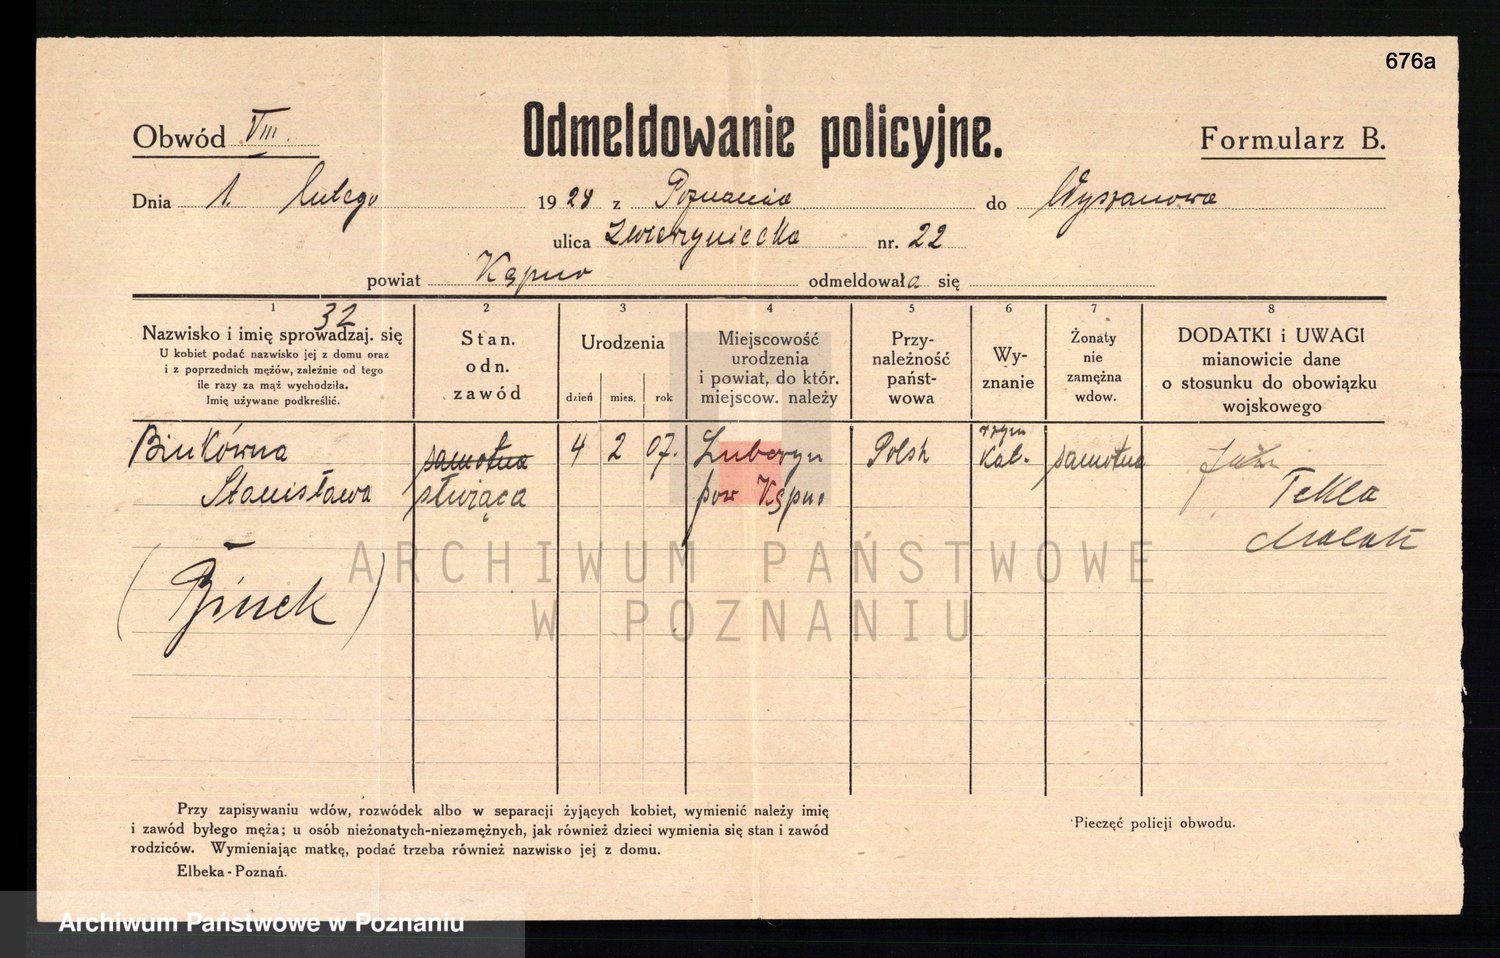 676a
Obwód VIII.
Odmeldowanie policyjne.
Formularz B.
Dnia 1. lutego 1928 z Poznania do Wyszanowa
ulica Zwierzyniecka nr. 22
powiat Kępno odmeldowała się
1 2 3 4 5 6 7 8
32
Nazwisko i imię sprowadzaj. się
U kobiet podać nazwisko jej z domu oraz
i z poprzednich mężów, zależnie od tego
ile razy za mąż wychodziła.
Imię używane podkreślić.
Stan.
odn.
zawód
Urodzenia
dzień mies. rok
Miejscowość
urodzenia
i powiat, do któr.
miejscow. należy
Przy-
należność
państ-
wowa
Wy-
znanie
Żonaty
nie
zamężna
wdow.
DODATKI i UWAGI
mianowicie dane
o stosunku do obowiązku
wojskowego
Binkówna samotna 4 2 07. Polsk rzym
Kat. samotna
Stanisława służąca pow Kępno Tekla
(Binek)
ARCHIWUM PAŃSTWOWE
W POZNANIU
Przy zapisywaniu wdów, rozwódek albo w separacji żyjących kobiet, wymienić należy imię
i zawód byłego męża; u osób nieżonatych-niezamężnych, jak również dzieci wymienia się stan i zawód
rodziców. Wymieniając matkę, podać trzeba również nazwisko jej z domu.
Elbeka-Poznań.
Pieczęć policji obwodu.
Archiwum Państwowe w Poznaniu